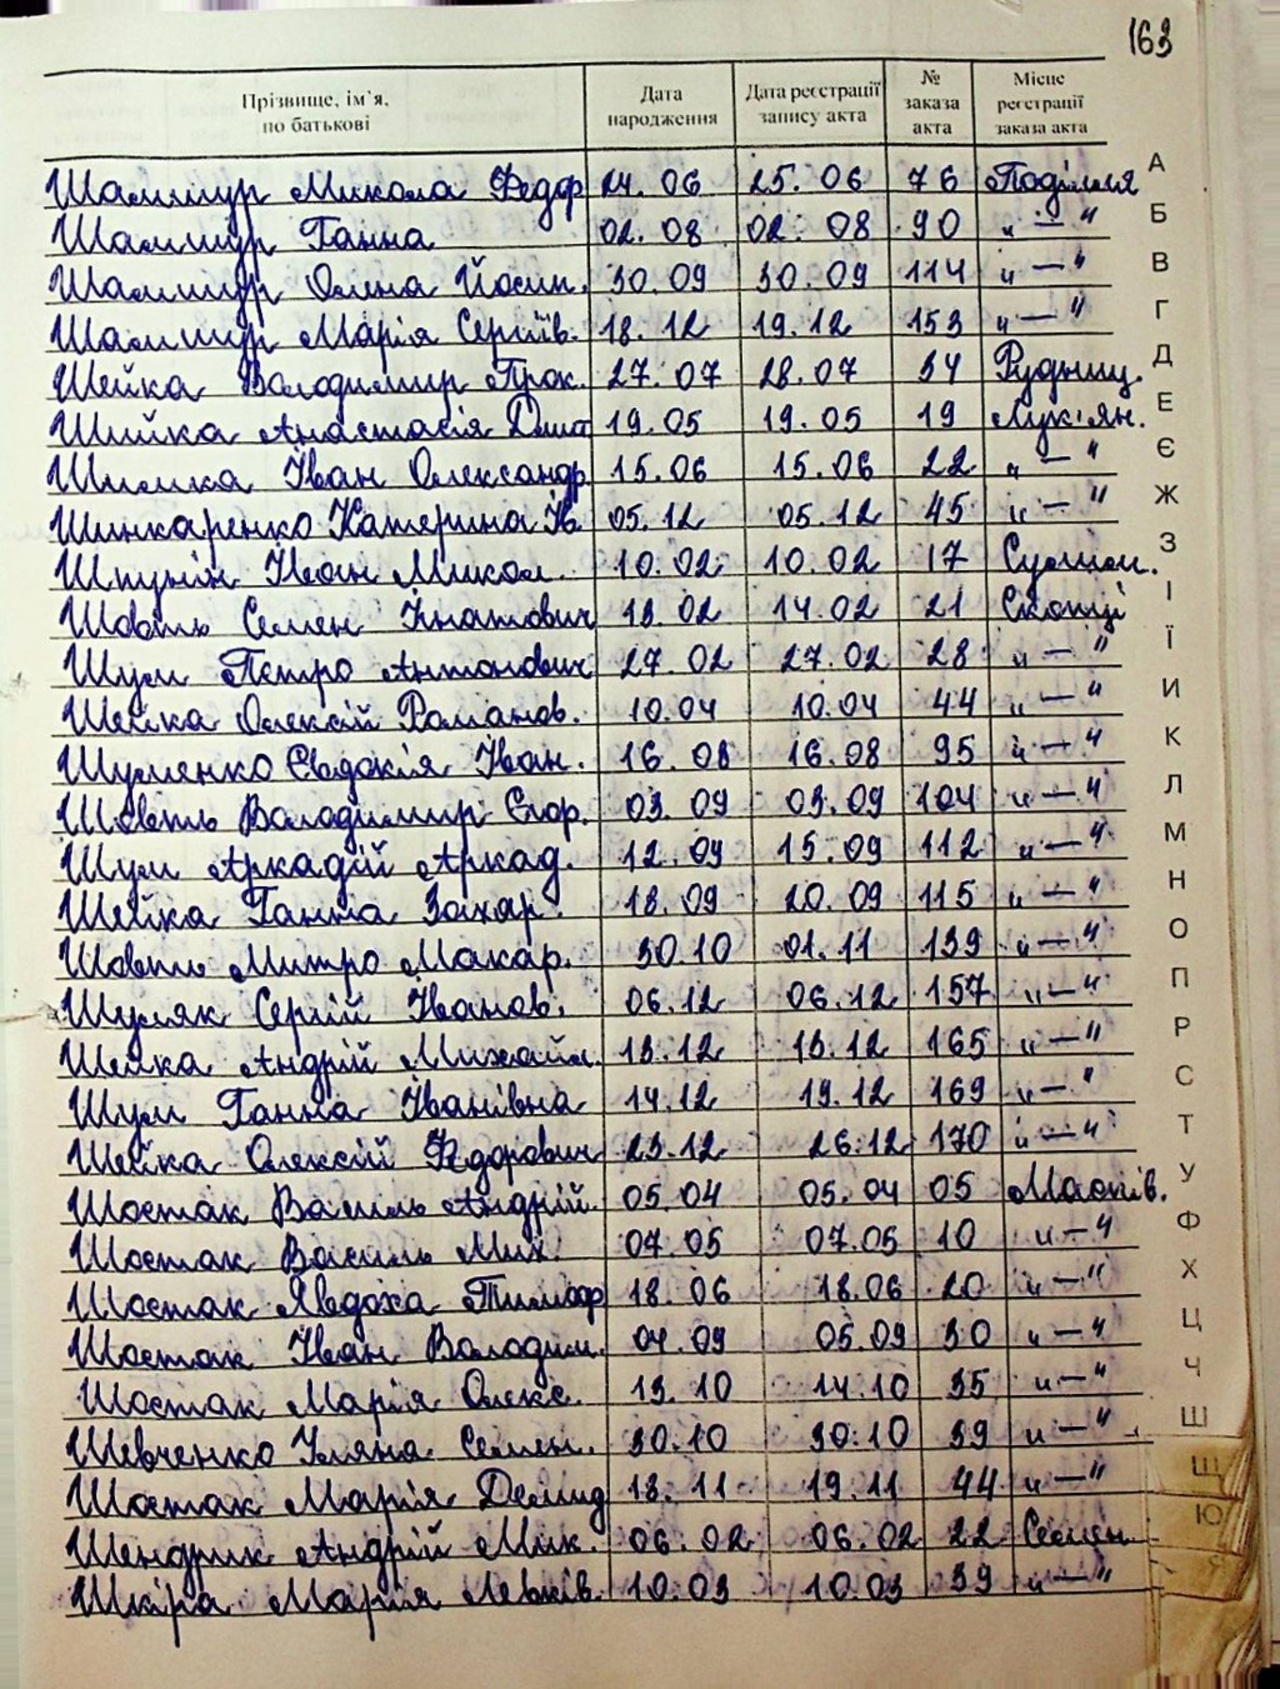 163
Прізвище, ім'я, по батькові Дата народження Дата реєстрації запису акта № заказа акта Місце реєстрації заказа акта
Шаммур Микола Федор 24.06 25.06 76 Поділля
Шаммур Ганна 02.08 02.08 90 „—"
Шаммур Олена Йосип. 30.09 30.09 114 „—"
Шаммур Марія Сергіїв. 18.12 19.12 153 „—"
Шейка Володимир Прок. 27.07 28.07 34 Рудниц.
Шийка Анастасія Дмит 19.05 19.05 19 Лук'ян.
Шишка Іван Олександр. 15.06 15.06 22 „—"
Шинкаренко Катерина Ів 05.12 05.12 45 „—"
Шпунін Іван Микол. 10.02 10.02 17 Сулим.
Шовть Семен Ігнатович 13.02 14.02 21 Скопці
Шум Петро Антонович 27.02 27.02 28 „—"
Шейка Олексій Романов. 10.04 10.04 44 „—"
Шуменко Євдокія Іван. 16.08 16.08 95 „—"
Шовть Володимир Єгор. 03.09 03.09 104 „—"
Шум Аркадій Аркад. 12.09 15.09 112 „—"
Шейка Ганна Захар. 18.09 20.09 115 „—"
Шовть Митро Макар. 30.10 01.11 139 „—"
Шуляк Сергій Іванов. 06.12 06.12 157 „—"
Шейка Андрій Михайл. 13.12 13.12 165 „—"
Шум Ганна Іванівна 14.12 19.12 169 „—"
Шейка Олексій Федорович 23.12 26.12 170 „—"
Шостак Василь Андрій. 05.04 05.04 05 Масків.
Шостак Василь Мих. 07.05 07.05 10 „—"
Шостак Явдоха Тимоф 18.06 18.06 20 „—"
Шостак Іван Володим. 04.09 05.09 30 „—"
Шостак Марія Олекс. 13.10 14.10 35 „—"
Шевченко Уляна Семен. 30.10 30.10 39 „—"
Шостак Марія Демид 18.11 19.11 44 „—"
Шендрик Андрій Мик. 06.02 06.02 22 Семен.
Шкіра Марія Левків. 10.03 10.03 39 „—"
А
Б
В
Г
Д
Е
Є
Ж
З
І
Ї
И
К
Л
М
Н
О
П
Р
С
Т
У
Ф
Х
Ц
Ч
Ш
Щ
Ю
Я